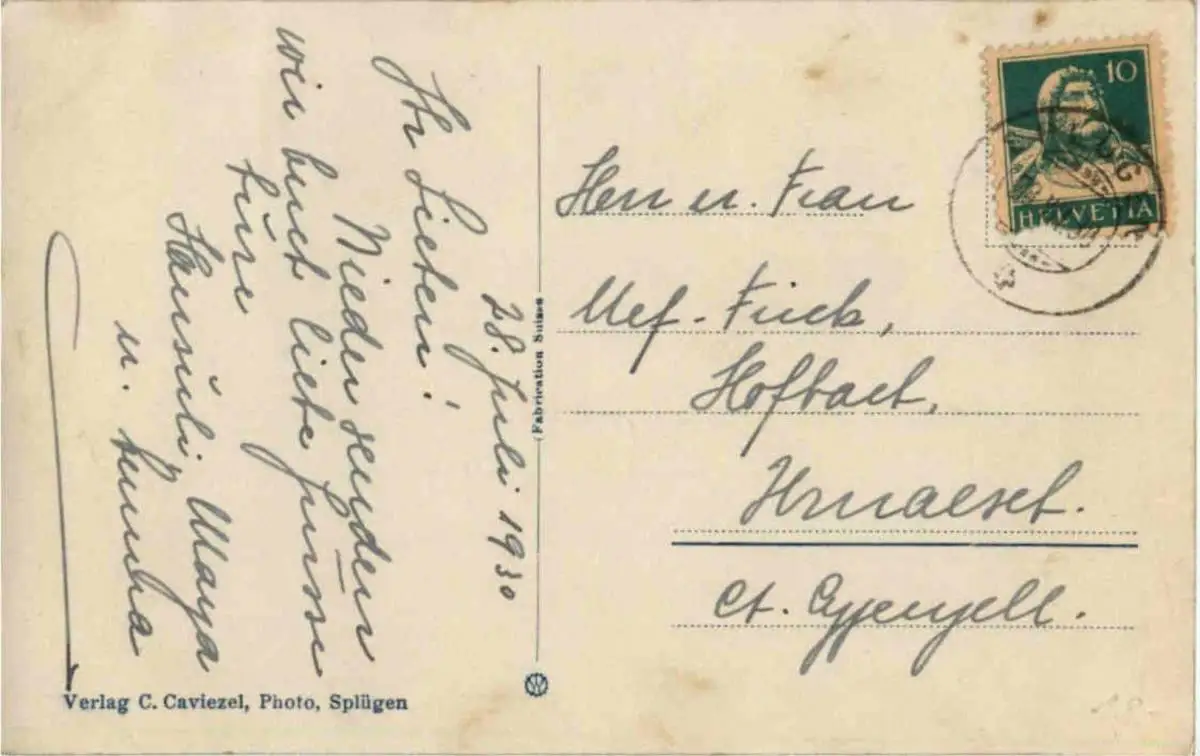 28. Juli 1930
Ihr Lieben!
Wieder senden
wir euch liebe Grüsse
Eure
Hansuli, Maya
u.
Herr u. Frau
Mef-Frick,
Hofbach,
Urnäsch.
Ct. Appenzell.
10
HELVETIA
(Fabrication Suisse
Verlag C. Caviezel, Photo, Splügen